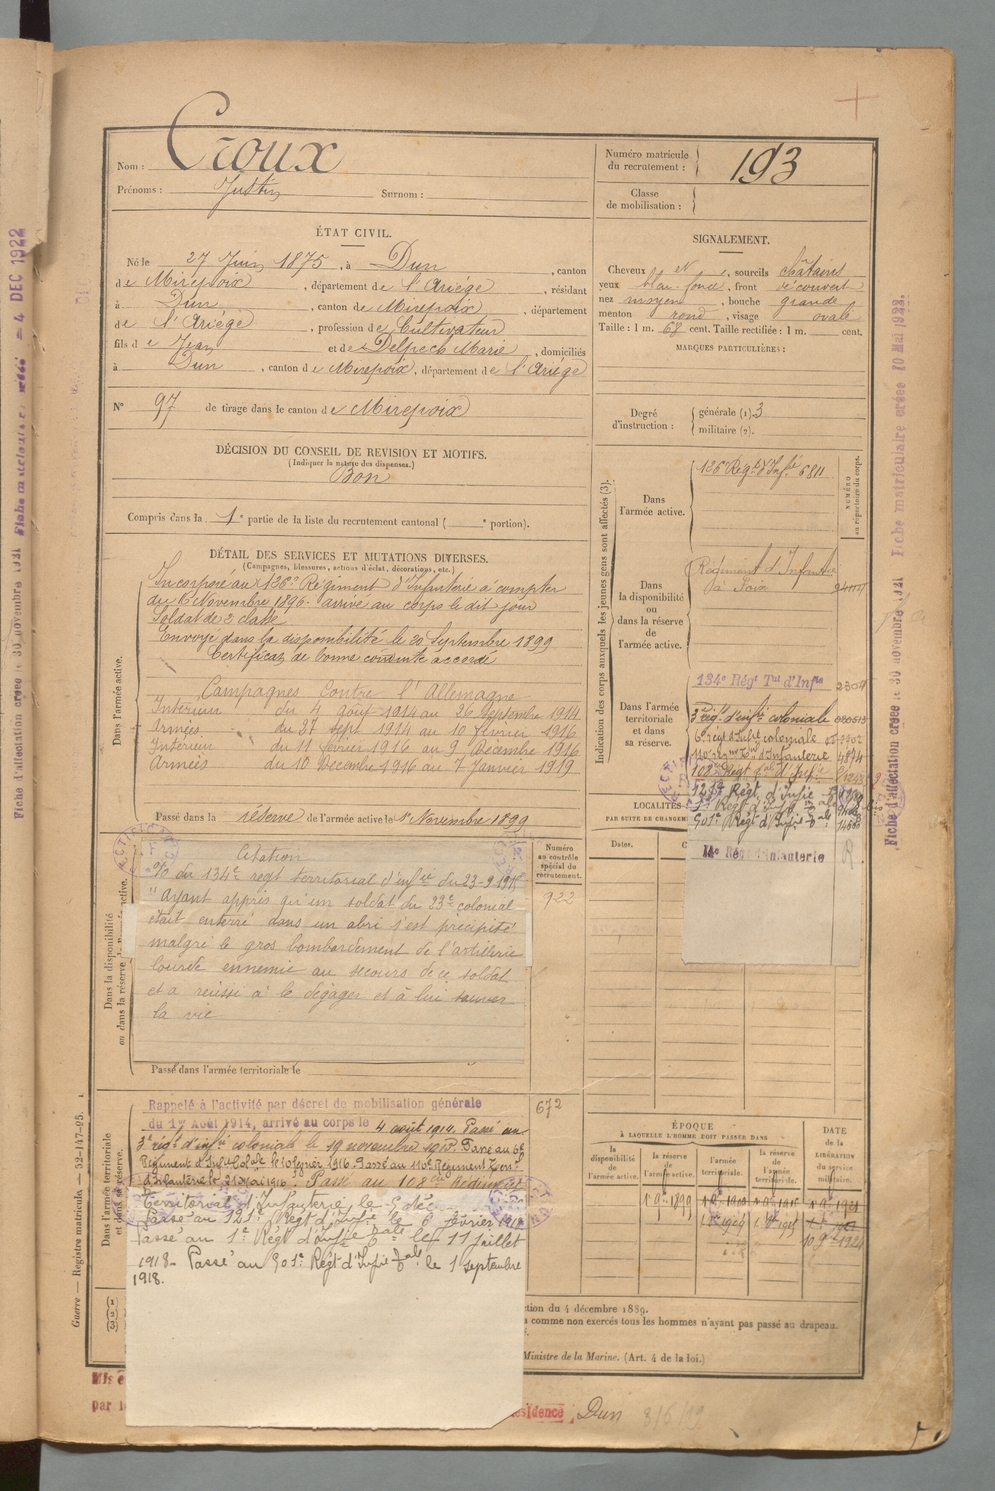 Nom : Croux
Prénoms : Justin Surnom :
Numéro matricule du recrutement : 193
Classe de mobilisation :
ÉTAT CIVIL.
Né le 27 Juin 1875, à Dun, canton
de Mirepoix, département de l'Ariège, résidant
à Dun, canton de Mirepoix, département
de l'Ariège, profession de Cultivateur
fils de Jean et de Delpech Marie, domiciliés
à Dun, canton de Mirepoix, département de l'Ariège
N° 97 de tirage dans le canton de Mirepoix
SIGNALEMENT.
Cheveux et sourcils châtains
yeux front découvert
nez moyen, bouche grande
menton rond, visage ovale
Taille : 1 m. 68 cent. Taille rectifiée : 1 m. cent.
MARQUES PARTICULIÈRES :
Degré d'instruction : générale (1) 3
militaire (2).
DÉCISION DU CONSEIL DE REVISION ET MOTIFS.
(Indiquer la nature des dispenses.)
Bon
Compris dans la 1e partie de la liste du recrutement cantonal ( e portion).
DÉTAIL DES SERVICES ET MUTATIONS DIVERSES.
(Campagnes, blessures, actions d'éclat, décorations, etc.)
Dans l'armée active.
Incorporé au 126e Régiment d'Infanterie à compter
du 16 Novembre 1896. arrivé au corps le dit jour
Soldat de 2e classe
Envoyé dans la disponibilité le 20 Septembre 1899
Certificat de bonne conduite accordé
Campagnes Contre l'Allemagne
Intérieur du 4 août 1914 au 26 septembre 1914
Armées du 27 sept 1914 au 10 février 1916
Intérieur du 11 février 1916 au 9 Décembre 1916
Armées du 10 Décembre 1916 au 7 Janvier 1919
Passé dans la réserve de l'armée active le 1er Novembre 1899
Dans la disponibilité ou dans la réserve de l'armée active.
Numéro au contrôle spécial du recrutement.
922
Citation
du 134e regt territorial d'infie du 23-9-1915
"Ayant appris qu'un soldat du 23e colonial
était enterré dans un abri s'est précipité
malgré le gros bombardement de l'artillerie
lourde ennemie au secours de ce soldat
et a réussi à le dégager et à lui sauver
la vie
Passé dans l'armée territoriale le
Dans l'armée territoriale et dans sa réserve.
672
Rappelé à l'activité par décret de mobilisation générale
du 1er Août 1914, arrivé au corps le 4 août 1914. Passé au
3e régt d'infie coloniale le 19 novembre 1915. Passé au 6e
Régiment d'Infie Colale le 10 février 1916. Passé au 110e Régiment Terral
d'Infanterie le 21 Mai 1916. Passé au 108e Régiment
Territorial d'Infanterie le
Passé au 121e Régt d'Infie le 6 février 191
Passé au 1e Régt d'Infie le 11 juillet
1918. Passé au 901e Régt d'Infie le 1 septembre
1918.
Indication des corps auxquels les jeunes gens sont affectés (3).
NUMÉRO au répertoire du corps.
Dans l'armée active.
126e Régt d'Infie 6811
Dans la disponibilité ou dans la réserve de l'armée active.
Régiment d'Infanterie
à Foix
Dans l'armée territoriale et dans sa réserve.
134e Régt Tal d'Infie
3e régt d'infie coloniale
6e régt d'infie coloniale
110e d'Infanterie 4894
108e Régt tal d'Infie
121e Régt d'Infie
1e Régt d'Infie
901e Régt d'Infie
14e Régt d'Infanterie
LOCALITÉS
PAR SUITE DE CHANGEM
Dates.
ÉPOQUE
À LAQUELLE L'HOMME DOIT PASSER DANS
la disponibilité de l'armée active.
la réserve de l'armée active.
l'armée territoriale.
la réserve de l'armée territoriale.
DATE de la LIBÉRATION du service militaire.
ction du 4 décembre 1889.
s comme non exercés tous les hommes n'ayant pas passé au drapeau.
Ministre de la Marine. (Art. 4 de la loi.)
Guerre — Registre matricule. — 52-147-95.
Mis e
par l
sidence Dun 3/5/19
Fiche matriculaire créée 10 Mai 1922.
Fiche d'affectation créée le 30 novembre 1921
Fiche d'affectation créée le 30 novembre 1921
4 DEC 1922